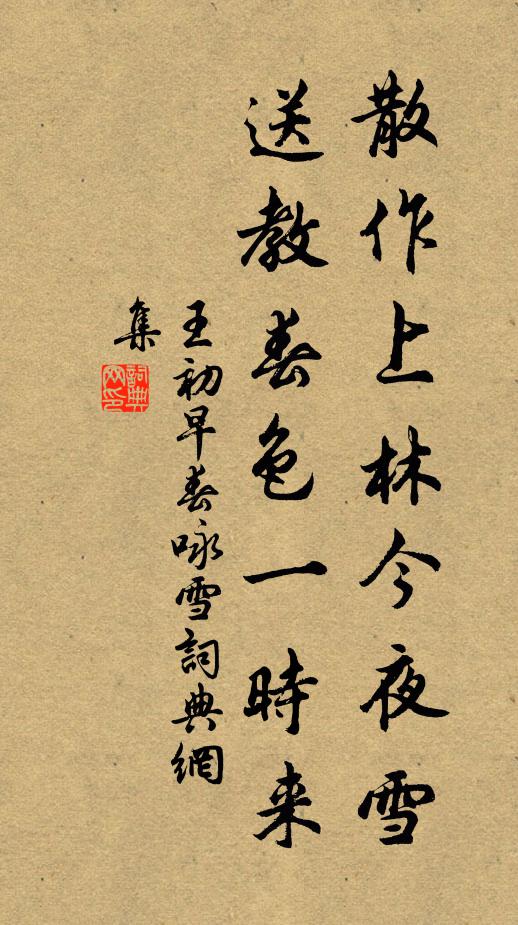 散作上林今夜雪
送教春色一時来
王初早春咏雪詞典網
集
詞典
网印